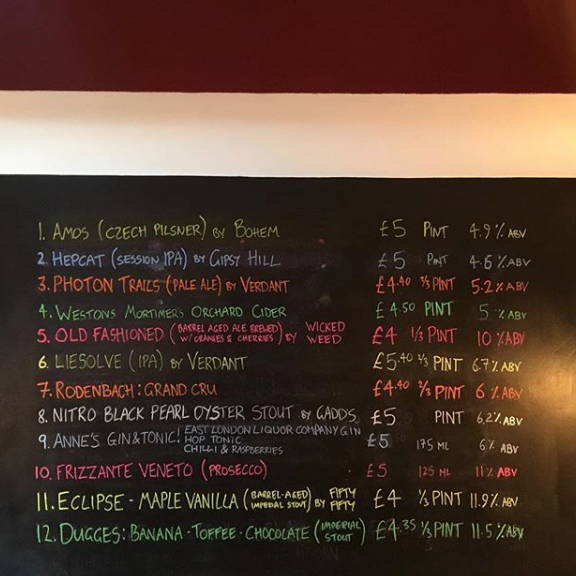 1. AMOS (CZECH PILSNER) BY BOHEM £5 PINT 4.9% ABV
2. HEPCAT (SESSION IPA) BY GIPSY HILL £5 PINT 4.6% ABV
3. PHOTON TRAILS (PALE ALE) BY VERDANT £4.40 ⅔ PINT 5.2% ABV
4. WESTONS MORTIMERS ORCHARD CIDER £4.50 PINT 5% ABV
5. OLD FASHIONED (BARREL AGED ALE BREWED W/ORANGES & CHERRIES) BY WICKED WEED £4 1/3 PINT 10% ABV
6. LIESOLVE (IPA) BY VERDANT £5.40 ⅔ PINT 6.7% ABV
7. RODENBACH: GRAND CRU £4.40 ⅔ PINT 6% ABV
8. NITRO BLACK PEARL OYSTER STOUT BY GADDS £5 PINT 6.2% ABV
9. ANNE'S GIN & TONIC! EAST LONDON LIQUOR COMPANY GIN £5 175 ML 6% ABV
HOP TONIC
CHILLI & RASPBERRIES
10. FRIZZANTE VENETO (PROSECCO) £5 125 ML 11% ABV
11. ECLIPSE - MAPLE VANILLA (BARREL-AGED IMPERIAL STOUT) BY FIFTY FIFTY £4 ⅓ PINT 11.9% ABV
12. DUGGES: BANANA - TOFFEE - CHOCOLATE (IMPERIAL STOUT) £4.35 ⅓ PINT 11.5% ABV